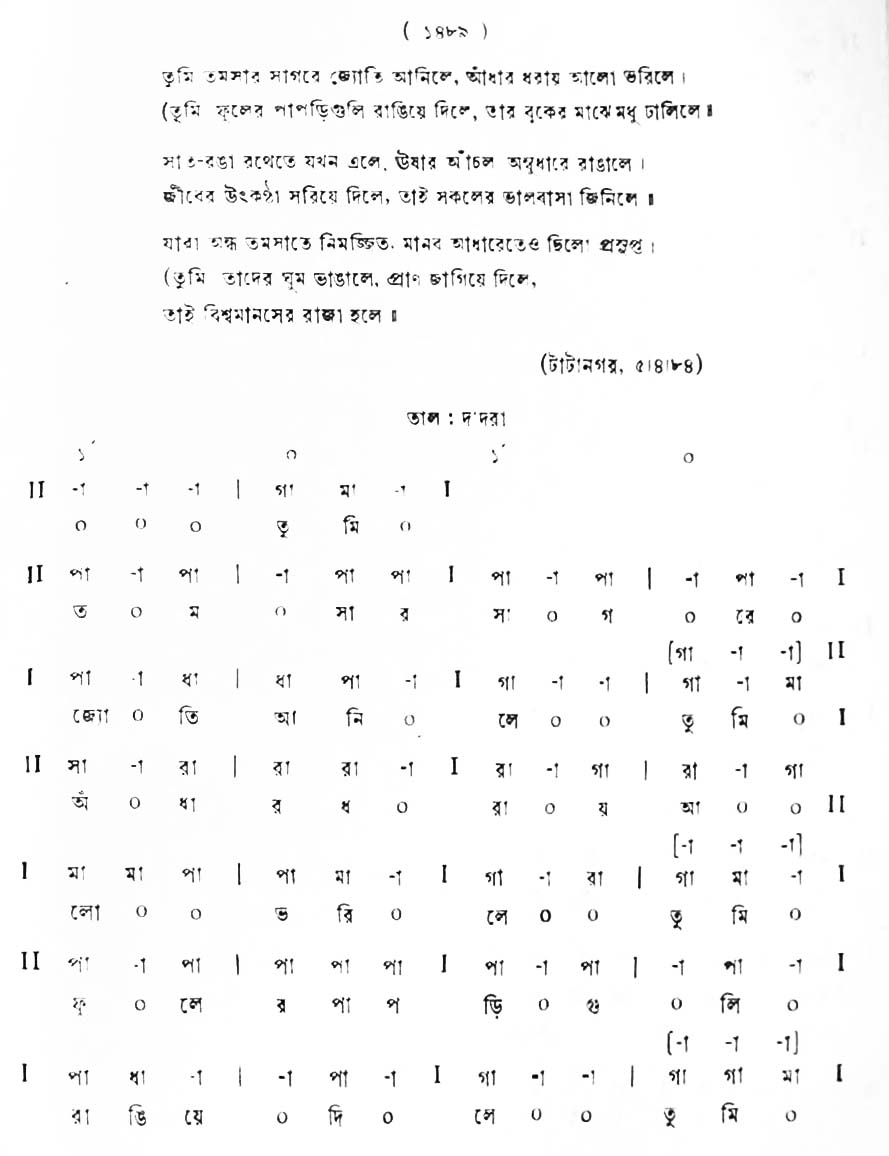 ( ১৪৮৯ )
তুমি তমসার সাগরে জ্যোতি আনিলে, আঁধার ধরায় আলো ভরিলে।
(তুমি ফুলের পাপড়িগুলি রাঙিয়ে দিলে, তার বুকের মাঝে মধু ঢালিলে॥
সাত-রঙা রথেতে যখন এলে, ঊষার আঁচল অম্বুধারে রাঙালে।
জীবের উৎকণ্ঠা সরিয়ে দিলে, তাই সকলের ভালবাসা জিনিলে॥
যারা অন্ধ তমসাতে নিমজ্জিত, মানব আধারেতেও ছিলো প্রসুপ্ত।
(তুমি তাদের ঘুম ভাঙালে, প্রাণ জাগিয়ে দিলে,
তাই বিশ্বমানসের রাজা হলে॥
(টাটানগর, ৫।৪।৮৪)
তাল : দাদরা
১´ ০ ১´ ০
II -া -া -া | গা মা -া I
০ ০ ০ তু মি ০
II পা -া পা | -া পা পা I পা -া পা | -া পা -া I
ত ০ ম ০ সা র সা ০ গ ০ রে ০
[গা -া -া] II
I পা -া ধা | ধা পা -া I গা -া -া | গা -া মা
জ্যো ০ তি আ নি ০ লে ০ ০ তু মি ০ I
II সা -া রা | রা রা -া I রা -া গা | রা -া গা
আঁ ০ ধা র ধ ০ রা ০ য় আ ০ ০ II
[-া -া -া]
I মা মা পা | পা মা -া I গা -া রা | গা মা -া I
লো ০ ০ ভ রি ০ লে ০ ০ তু মি ০
II পা -া পা | পা পা পা I পা -া পা | -া পা -া I
ফু ০ লে র পা প ড়ি ০ গু ০ লি ০
[-া -া -া]
I পা ধা -া | -া পা -া I গা -া -া | গা গা মা I
রা ঙি য়ে ০ দি ০ লে ০ ০ তু মি ০